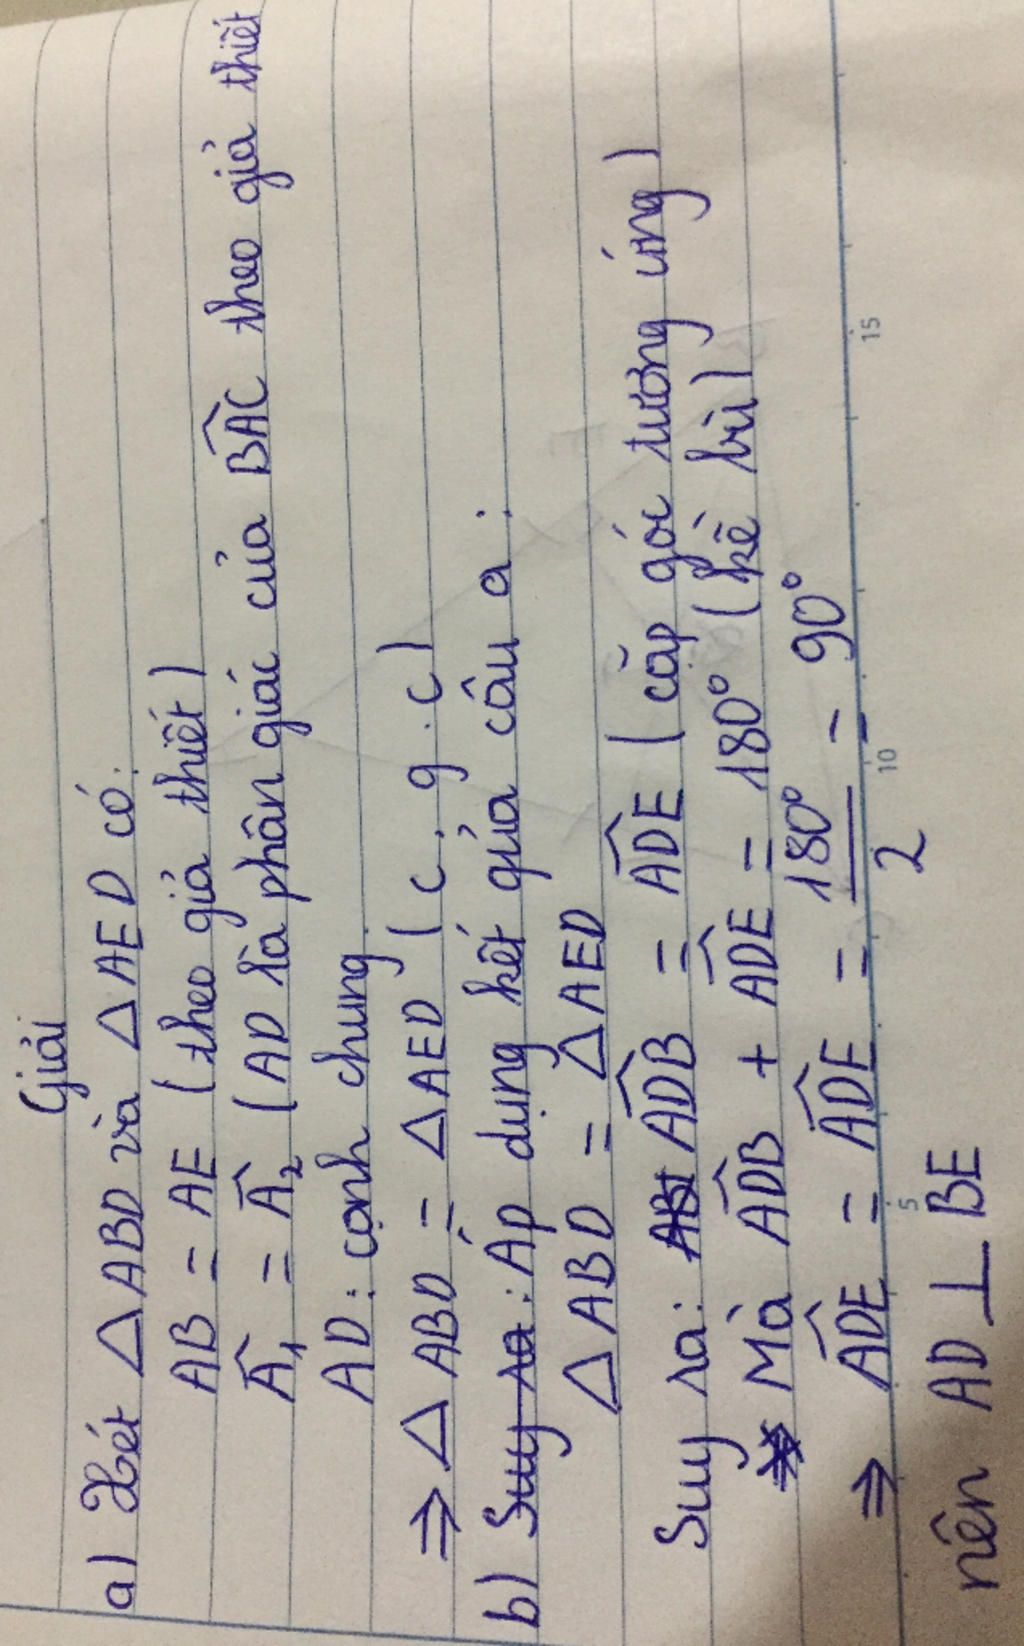 Giải
a) Xét △ABD và △AED có:
AB = AE (theo giả thiết)
Â₁ = Â₂ (AD là phân giác của B̂AC theo giả thiết
AD: cạnh chung
⇒ △ABD = △AED (c.g.c)
b) Suy ra: Áp dụng kết qủa câu a:
△ABD = △AED
Suy ra: ADB = ADE (cặp góc tương ứng)
Mà ADB + ADE = 180° (kề bù)
⇒ ADE = ADE = 180°/2 = 90°
nên AD ⊥ BE
5 10 15